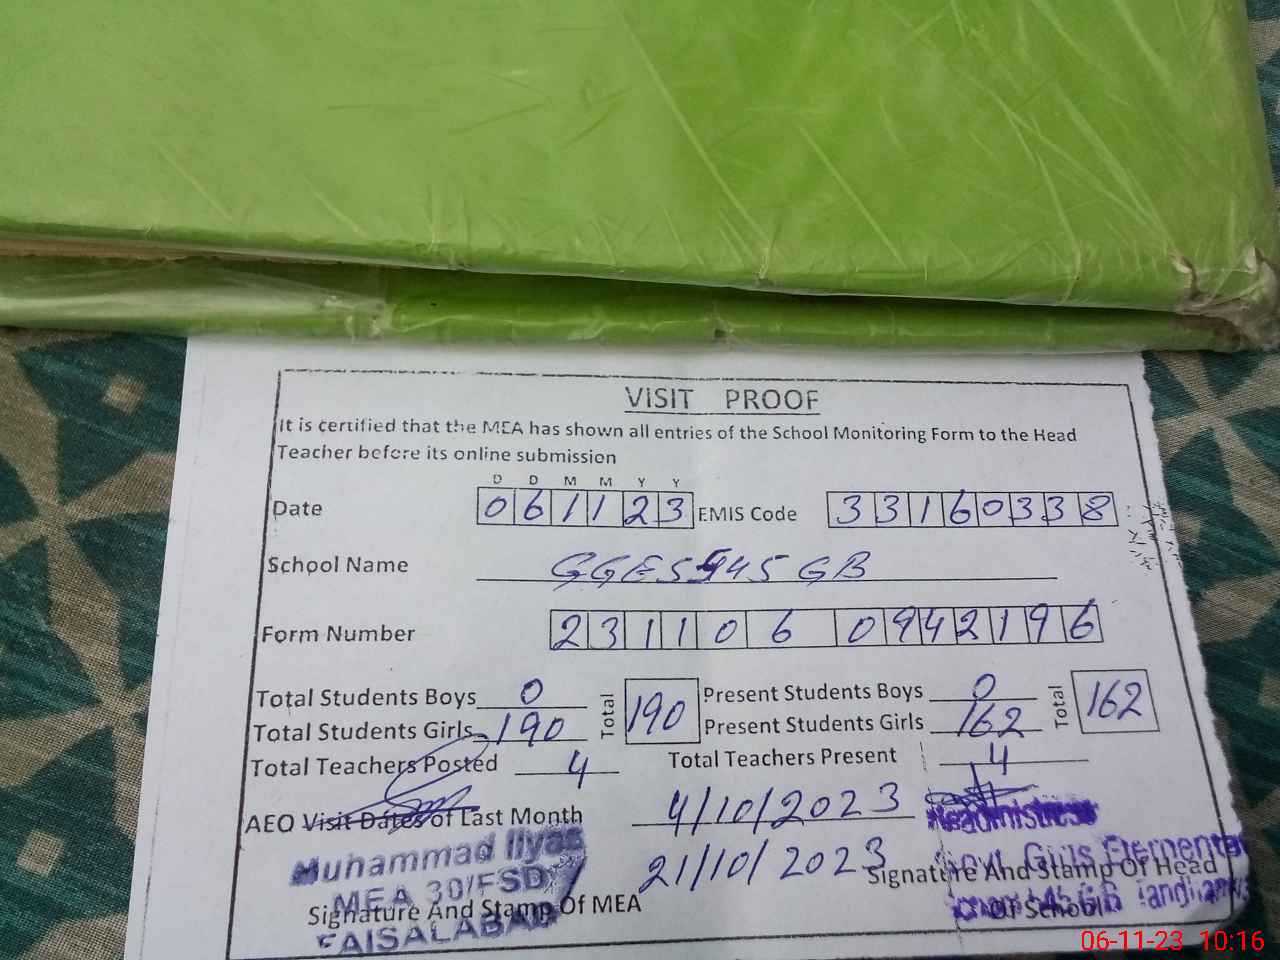 VISIT PROOF
It is certified that the MEA has shown all entries of the School Monitoring Form to the Head
Teacher before its online submission
D D M M Y Y
Date 061123 EMIS Code 33160338
School Name GGES 545 GB
Form Number 2311060942196
Total Students Boys 0 Total 190 Present Students Boys 0 Total 162
Total Students Girls 190 Present Students Girls 162
Total Teachers Posted 4 Total Teachers Present 4
AEO Visit Dates of Last Month 4/10/2023
21/10/2023
Headmistress
Muhammad Ilyas
MEA 30/FSD
FAISALABAD
Signature And Stamp Of MEA
Govt. Girls Elementary
Signature And Stamp Of Head
Of School
06-11-23 10:16